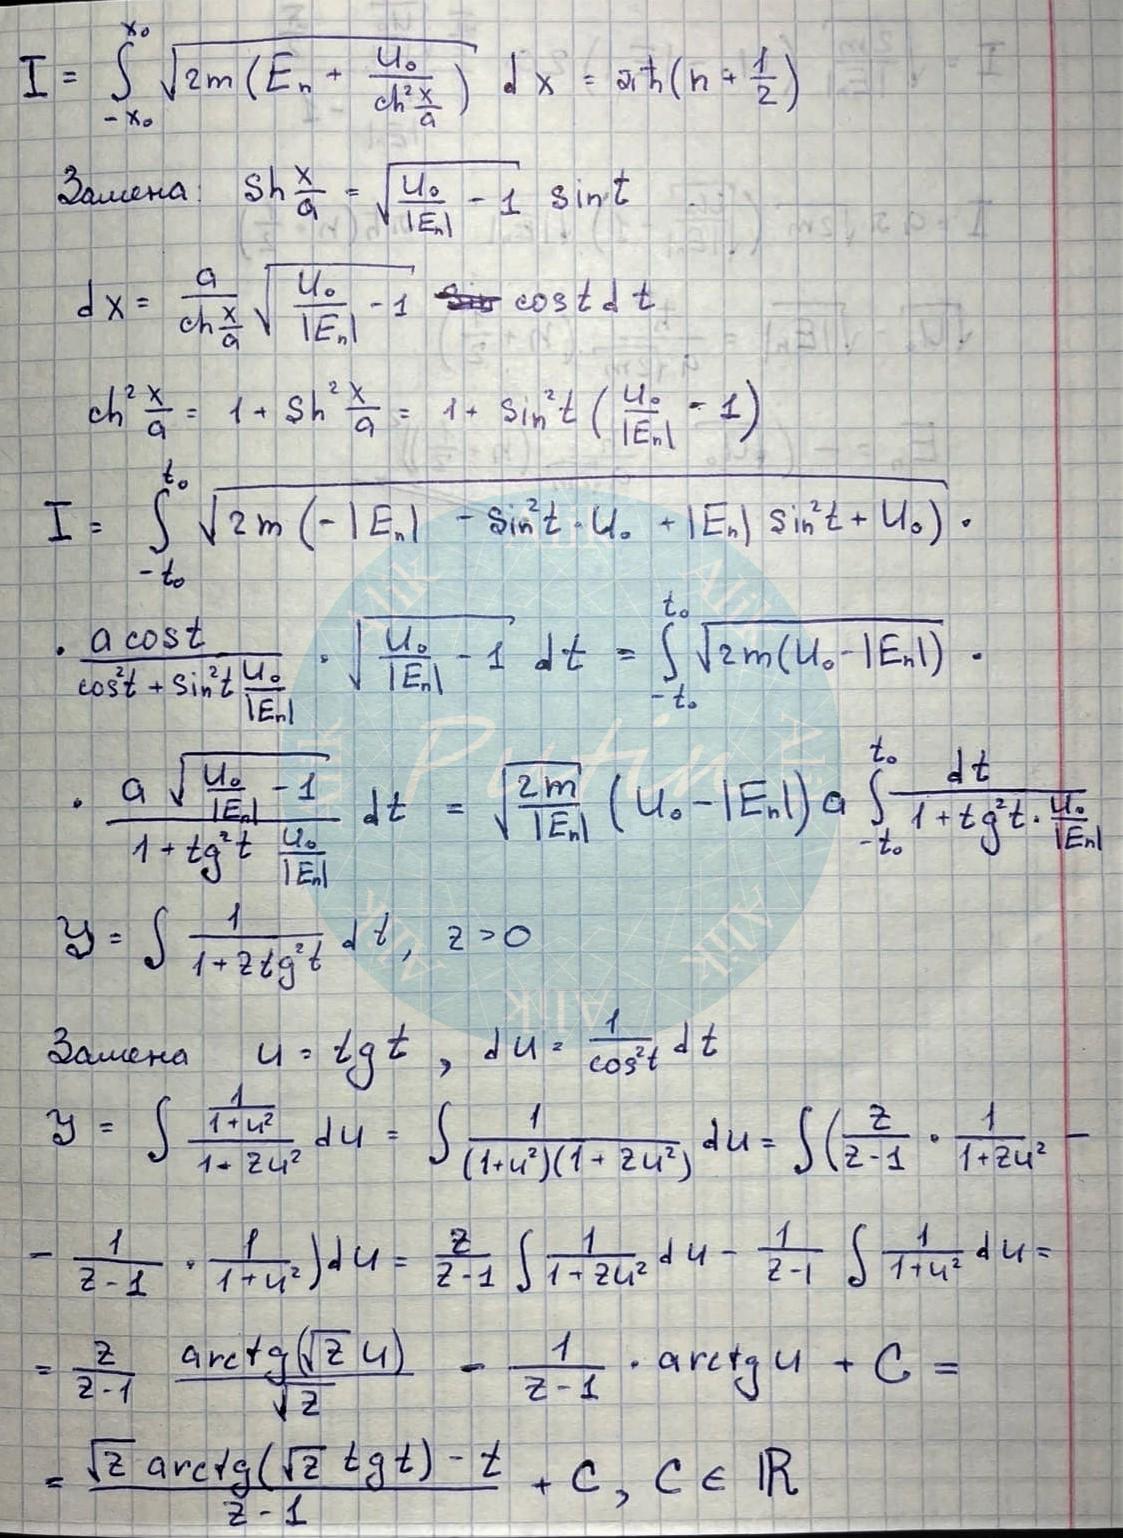 I = ∫_{-x₀}^{x₀} √(2m(Eₙ + U₀/ch²(x/a))) dx = πħ(n + 1/2)
Замена: sh x/a = √(U₀/|Eₙ| - 1) sin t
dx = a/ch(x/a) √(U₀/|Eₙ| - 1) cos t dt
ch² x/a = 1 + sh² x/a = 1 + sin²t (U₀/|Eₙ| - 1)
I = ∫_{-t₀}^{t₀} √(2m(-|Eₙ| - sin²t · U₀ + |Eₙ| sin²t + U₀)) ·
· a cos t/(cos²t + sin²t U₀/|Eₙ|) · √(U₀/|Eₙ| - 1) dt = ∫_{-t₀}^{t₀} √(2m(U₀ - |Eₙ|)) ·
· a√(U₀/|Eₙ| - 1)/(1 + tg²t U₀/|Eₙ|) dt = √(2m/|Eₙ|) (U₀ - |Eₙ|) a ∫_{-t₀}^{t₀} dt/(1 + tg²t · U₀/|Eₙ|)
Y = ∫ 1/(1 + z tg²t) dt, z > 0
Замена u = tg t, du = 1/cos²t dt
Y = ∫ (1/(1+u²))/(1 + zu²) du = ∫ 1/((1+u²)(1+zu²)) du = ∫(z/(z-1) · 1/(1+zu²) -
- 1/(z-1) · 1/(1+u²)) du = z/(z-1) ∫ 1/(1+zu²) du - 1/(z-1) ∫ 1/(1+u²) du =
= z/(z-1) arctg(√z u)/√z - 1/(z-1) · arctg u + C =
= (√z arctg(√z tg t) - t)/(z-1) + C, C ∈ ℝ
Putin
Alik
Alik
Alik
Alik
Alik
Alik
Alik